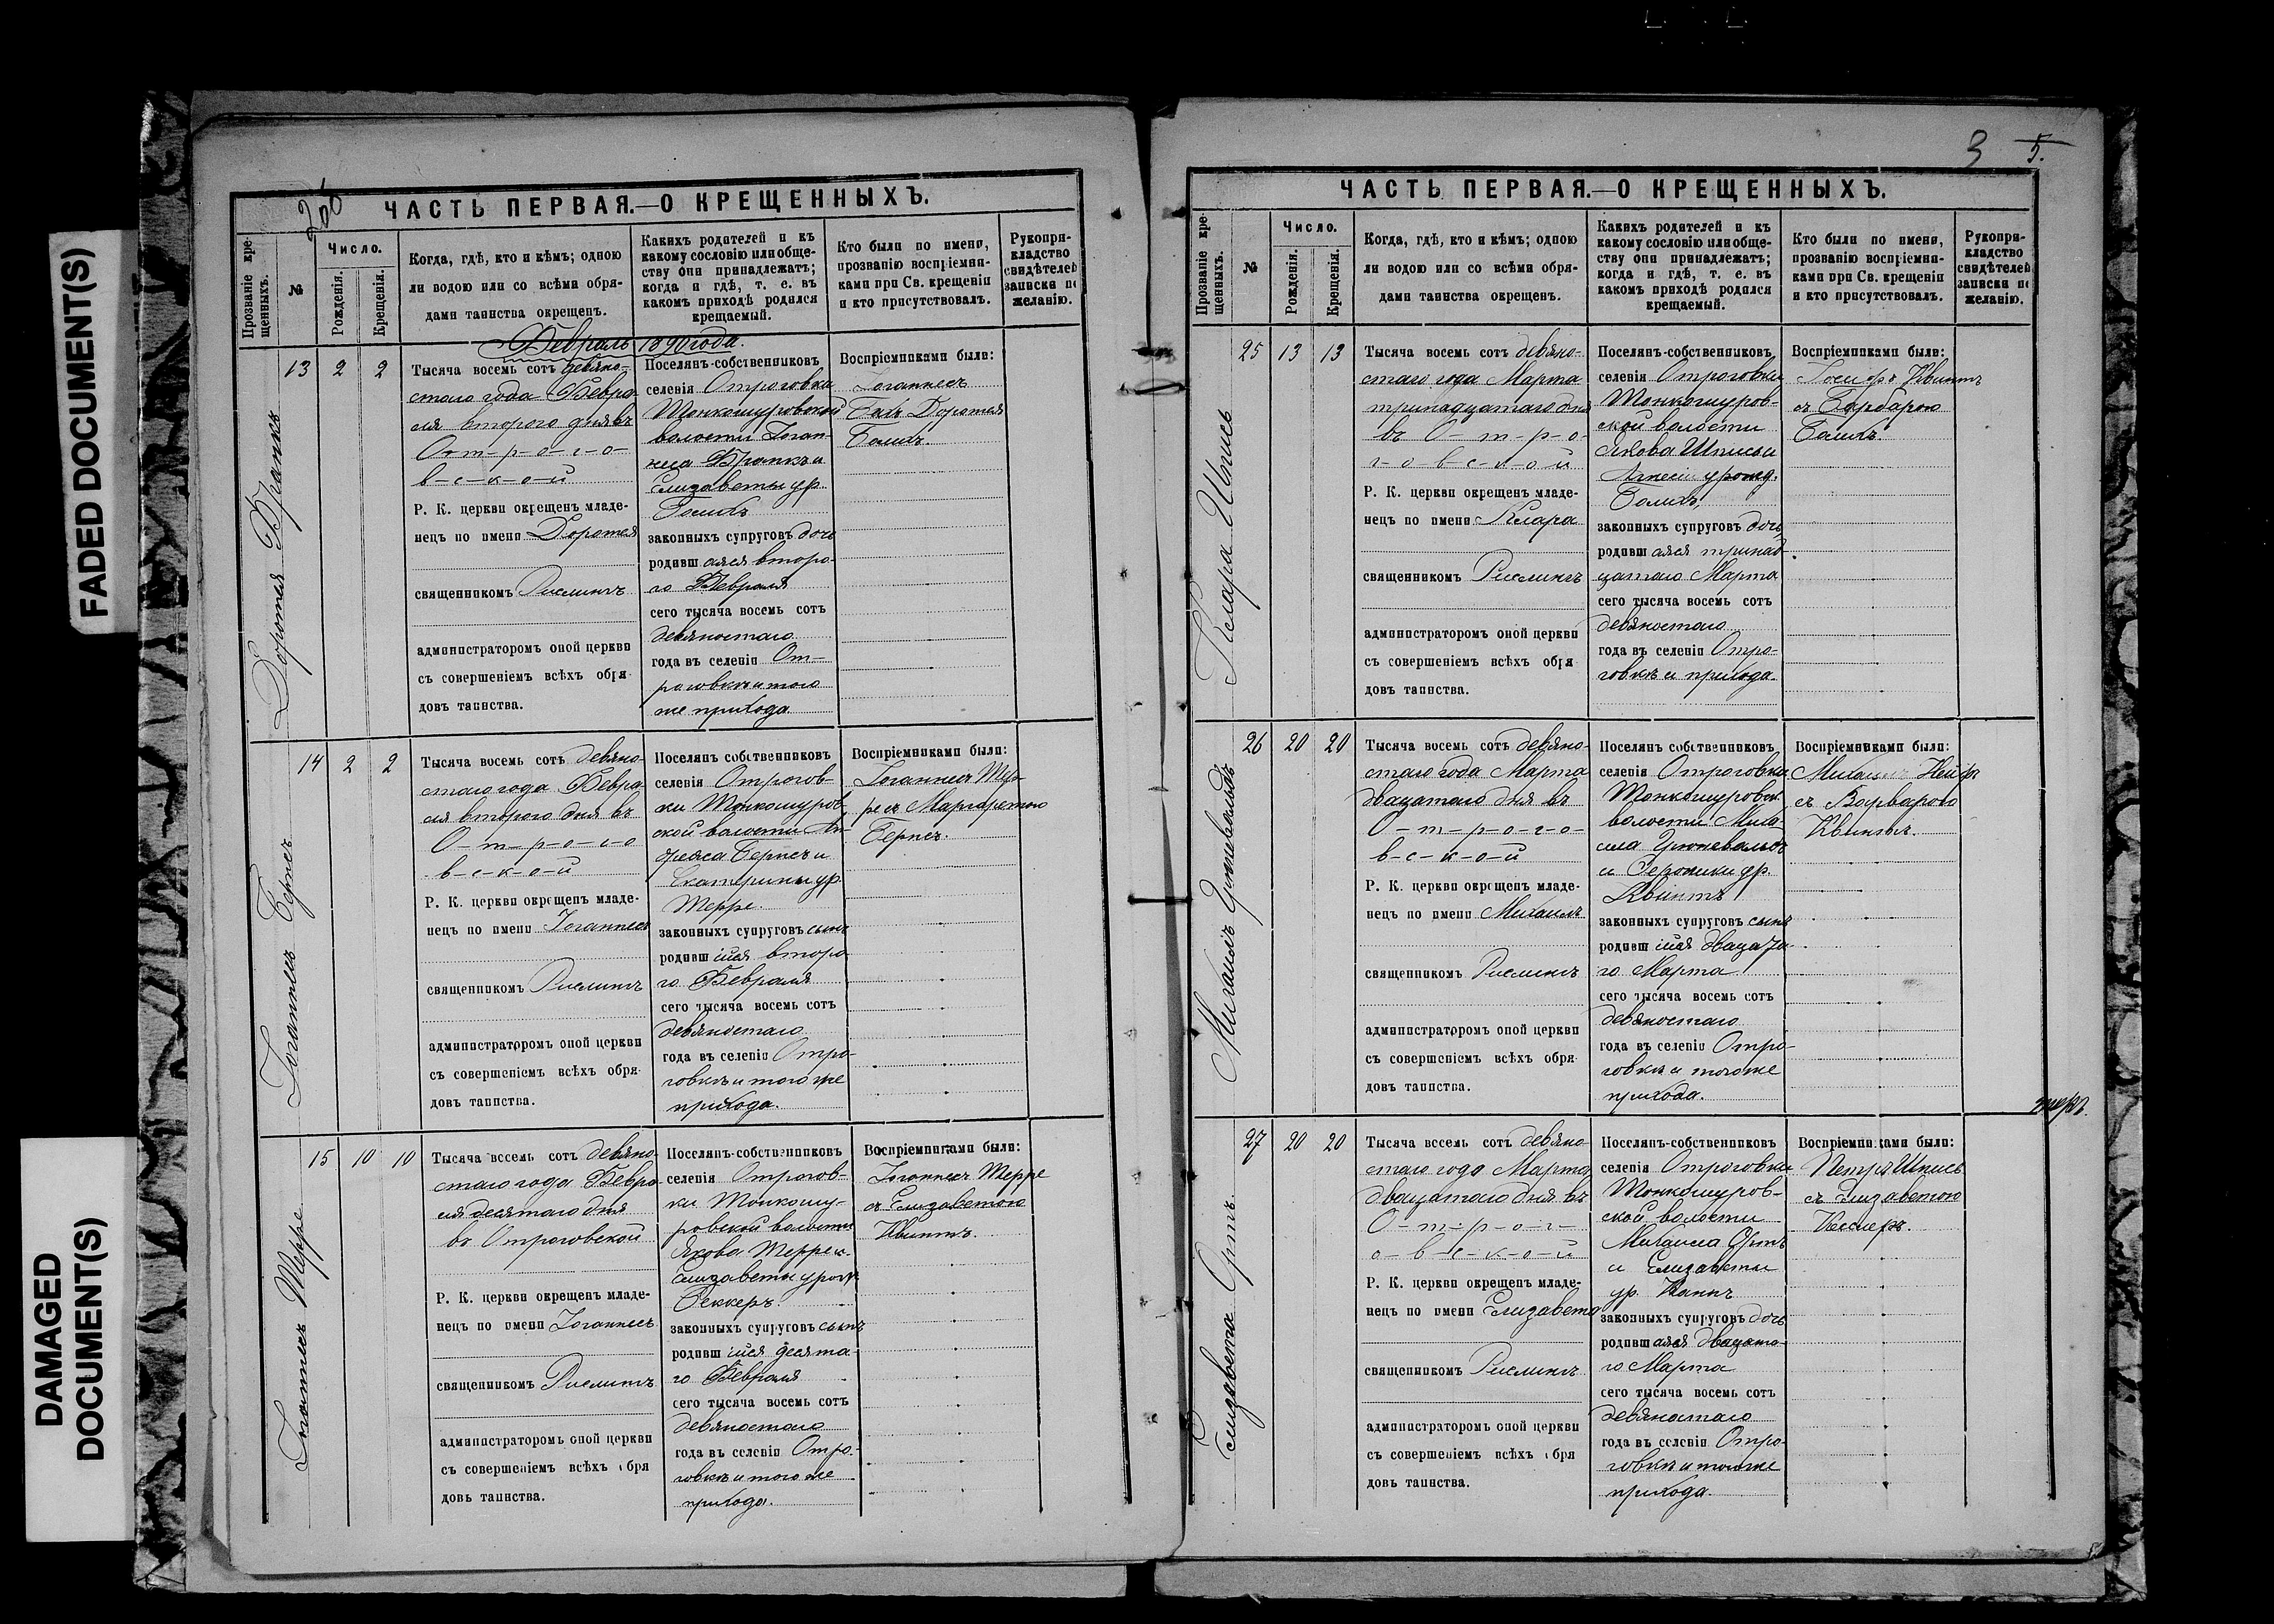 FADED DOCUMENT(S)
DAMAGED
DOCUMENT(S)
ЧАСТЬ ПЕРВАЯ.—О КРЕЩЕННЫХЪ.
Прозваніе кре-
щенныхъ.
№
Число.
Рожденія.
Крещенія.
Когда, гдѣ, кто и кѣмъ; одною
ли водою или со всѣми обря-
дами таинства окрещенъ.
Какихъ родителей и къ
какому сословію или обще-
ству они принадлежатъ;
когда и гдѣ, т. е. въ
какомъ приходѣ родился
крещаемый.
Кто были по имени,
прозванію воспріемни-
ками при Св. крещеніи
и кто присутствовалъ.
Рукопри-
кладство
свидѣтелей
записки по
желанію.
Февраль 1890 года.
Доротея Франкъ
13 2 2
Тысяча восемь сотъ девяно-
стаго года Февра-
ля второго дня въ
О-т-р-о-г-о-
в-с-к-о-й
Р. К. церкви окрещенъ младе-
нецъ по имени Доротея
священникомъ Рислингъ
администраторомъ оной церкви
съ совершеніемъ всѣхъ обря-
довъ таинства.
Поселянъ-собственниковъ
селенія Отроговка
Тонкошуровской
волости Іоган-
неса Франкъ и
Елизаветы ур.
законныхъ супруговъ дочь
родившаяся второ-
го Февраля
сего тысяча восемь сотъ
девяностаго
года въ селеніи От-
роговкѣ и того
же прихода
Воспріемниками были:
Іоганнесъ
Доротея
Іоганнесъ Бернсъ
14 2 2
Тысяча восемь сотъ девяно-
стаго года Февра-
ля второго дня въ
О-т-р-о-г-о
в-с-к-о-й
Р. К. церкви окрещенъ младе-
нецъ по имени Іоганнесъ
священникомъ Рислингъ
администраторомъ оной церкви
съ совершеніемъ всѣхъ обря-
довъ таинства.
Поселянъ собственниковъ
селенія Отрогов-
ки Тонкошуров-
ской волости Ан-
дреаса Бернсъ и
Екатерины ур.
Терре.
законныхъ супруговъ сынъ
родившійся второ-
го Февраля
сего тысяча восемь сотъ
девяностаго
года въ селеніи Отро-
говкѣ и того же
прихода.
Воспріемниками были:
Іоганнесъ Тер-
ре съ Маргаретою
Бернсъ.
Іоганнесъ Терре
15 10 10
Тысяча восемь сотъ девяно-
стаго года Февра-
ля десятаго дня
въ Отроговской
Р. К. церкви окрещенъ младе-
нецъ по имени Іоганнесъ
священникомъ Рислингъ
администраторомъ оной церкви
съ совершеніемъ всѣхъ обря
довъ таинства.
Поселянъ-собственниковъ
селенія Отрогов-
ки Тонкошу-
ровской волости
Якова Терре и
Елизаветы урож.
Беккеръ.
законныхъ супруговъ сынъ
родившійся десята-
го Февраля
сего тысяча восемь сотъ
девяностаго
года въ селеніи Отро-
говкѣ и того же
прихода.
Воспріемниками были:
Іоганнесъ Терре
съ Елизаветою
Квинтъ.
3 5.
ЧАСТЬ ПЕРВАЯ.—О КРЕЩЕННЫХЪ.
Прозваніе кре-
щенныхъ.
№
Число.
Рожденія.
Крещенія.
Когда, гдѣ, кто и кѣмъ; одною
ли водою или со всѣми обря-
дами таинства окрещенъ.
Какихъ родителей и къ
какому сословію или обще-
ству они принадлежатъ;
когда и гдѣ, т. е. въ
какомъ приходѣ родился
крещаемый.
Кто были по имени,
прозванію воспріемни-
ками при Св. крещеніи
и кто присутствовалъ.
Рукопри-
кладство
свидѣтелей
записки по
желанію.
Клара Шписъ
25 13 13
Тысяча восемь сотъ девяно-
стаго года Марта
тринадцатаго дня
въ О-т-р-о-
г-о-в-с-к-о-й
Р. К. церкви окрещенъ младе-
нецъ по имени Клара
священникомъ Рислингъ
администраторомъ оной церкви
съ совершеніемъ всѣхъ обря
довъ таинства.
Поселянъ-собственниковъ
селенія Отроговки
Тонкошуров-
ской волости
Якова Шписъ и
Агнесы урожд.
законныхъ супруговъ дочь
родившаяся тринад-
цатаго Марта
сего тысяча восемь сотъ
девяностаго
года въ селеніи Отро-
говкѣ и прихода.
Воспріемниками были:
Іосифъ Квинтъ
съ Барбарою
Михаилъ Грюневальдъ
26 20 20
Тысяча восемь сотъ девяно-
стаго года Марта
двацатаго дня въ
О-т-р-о-г-о-
в-с-к-о-й
Р. К. церкви окрещенъ младе-
нецъ по имени Михаилъ
священникомъ Рислингъ
администраторомъ оной церкви
съ совершеніемъ всѣхъ обря-
довъ таинства.
Поселянъ собственниковъ
селенія Отроговки
Тонкошуровск.
волости Миха-
ила Грюневальдъ
и Вероники ур.
Квинтъ
законныхъ супруговъ сынъ
родившійся двацата-
го Марта
сего тысяча восемь сотъ
девяностаго
года въ селеніи Отро-
говкѣ и того же
прихода.
Воспріемниками были:
съ Варварою
Квинтъ.
умеръ.
Елизавета Ортъ.
27 20 20
Тысяча восемь сотъ девяно-
стаго года Марта
двацатаго дня въ
О-т-р-о-г-
о-в-с-к-о-й
Р. К. церкви окрещенъ младе-
нецъ по имени Елизавета
священникомъ Рислингъ
администраторомъ оной церкви
съ совершеніемъ всѣхъ обря
довъ таинства.
Поселянъ-собственниковъ
селенія Отроговки
Тонкошуров-
ской волости
Михаила Ортъ
и Елизаветы
ур.
законныхъ супруговъ дочь
родившаяся двацата-
го Марта
сего тысяча восемь сотъ
девяностаго
года въ селеніи Отро-
говкѣ и того же
прихода.
Воспріемниками были:
Петръ Шписъ
съ Елизаветою
Кесслеръ.